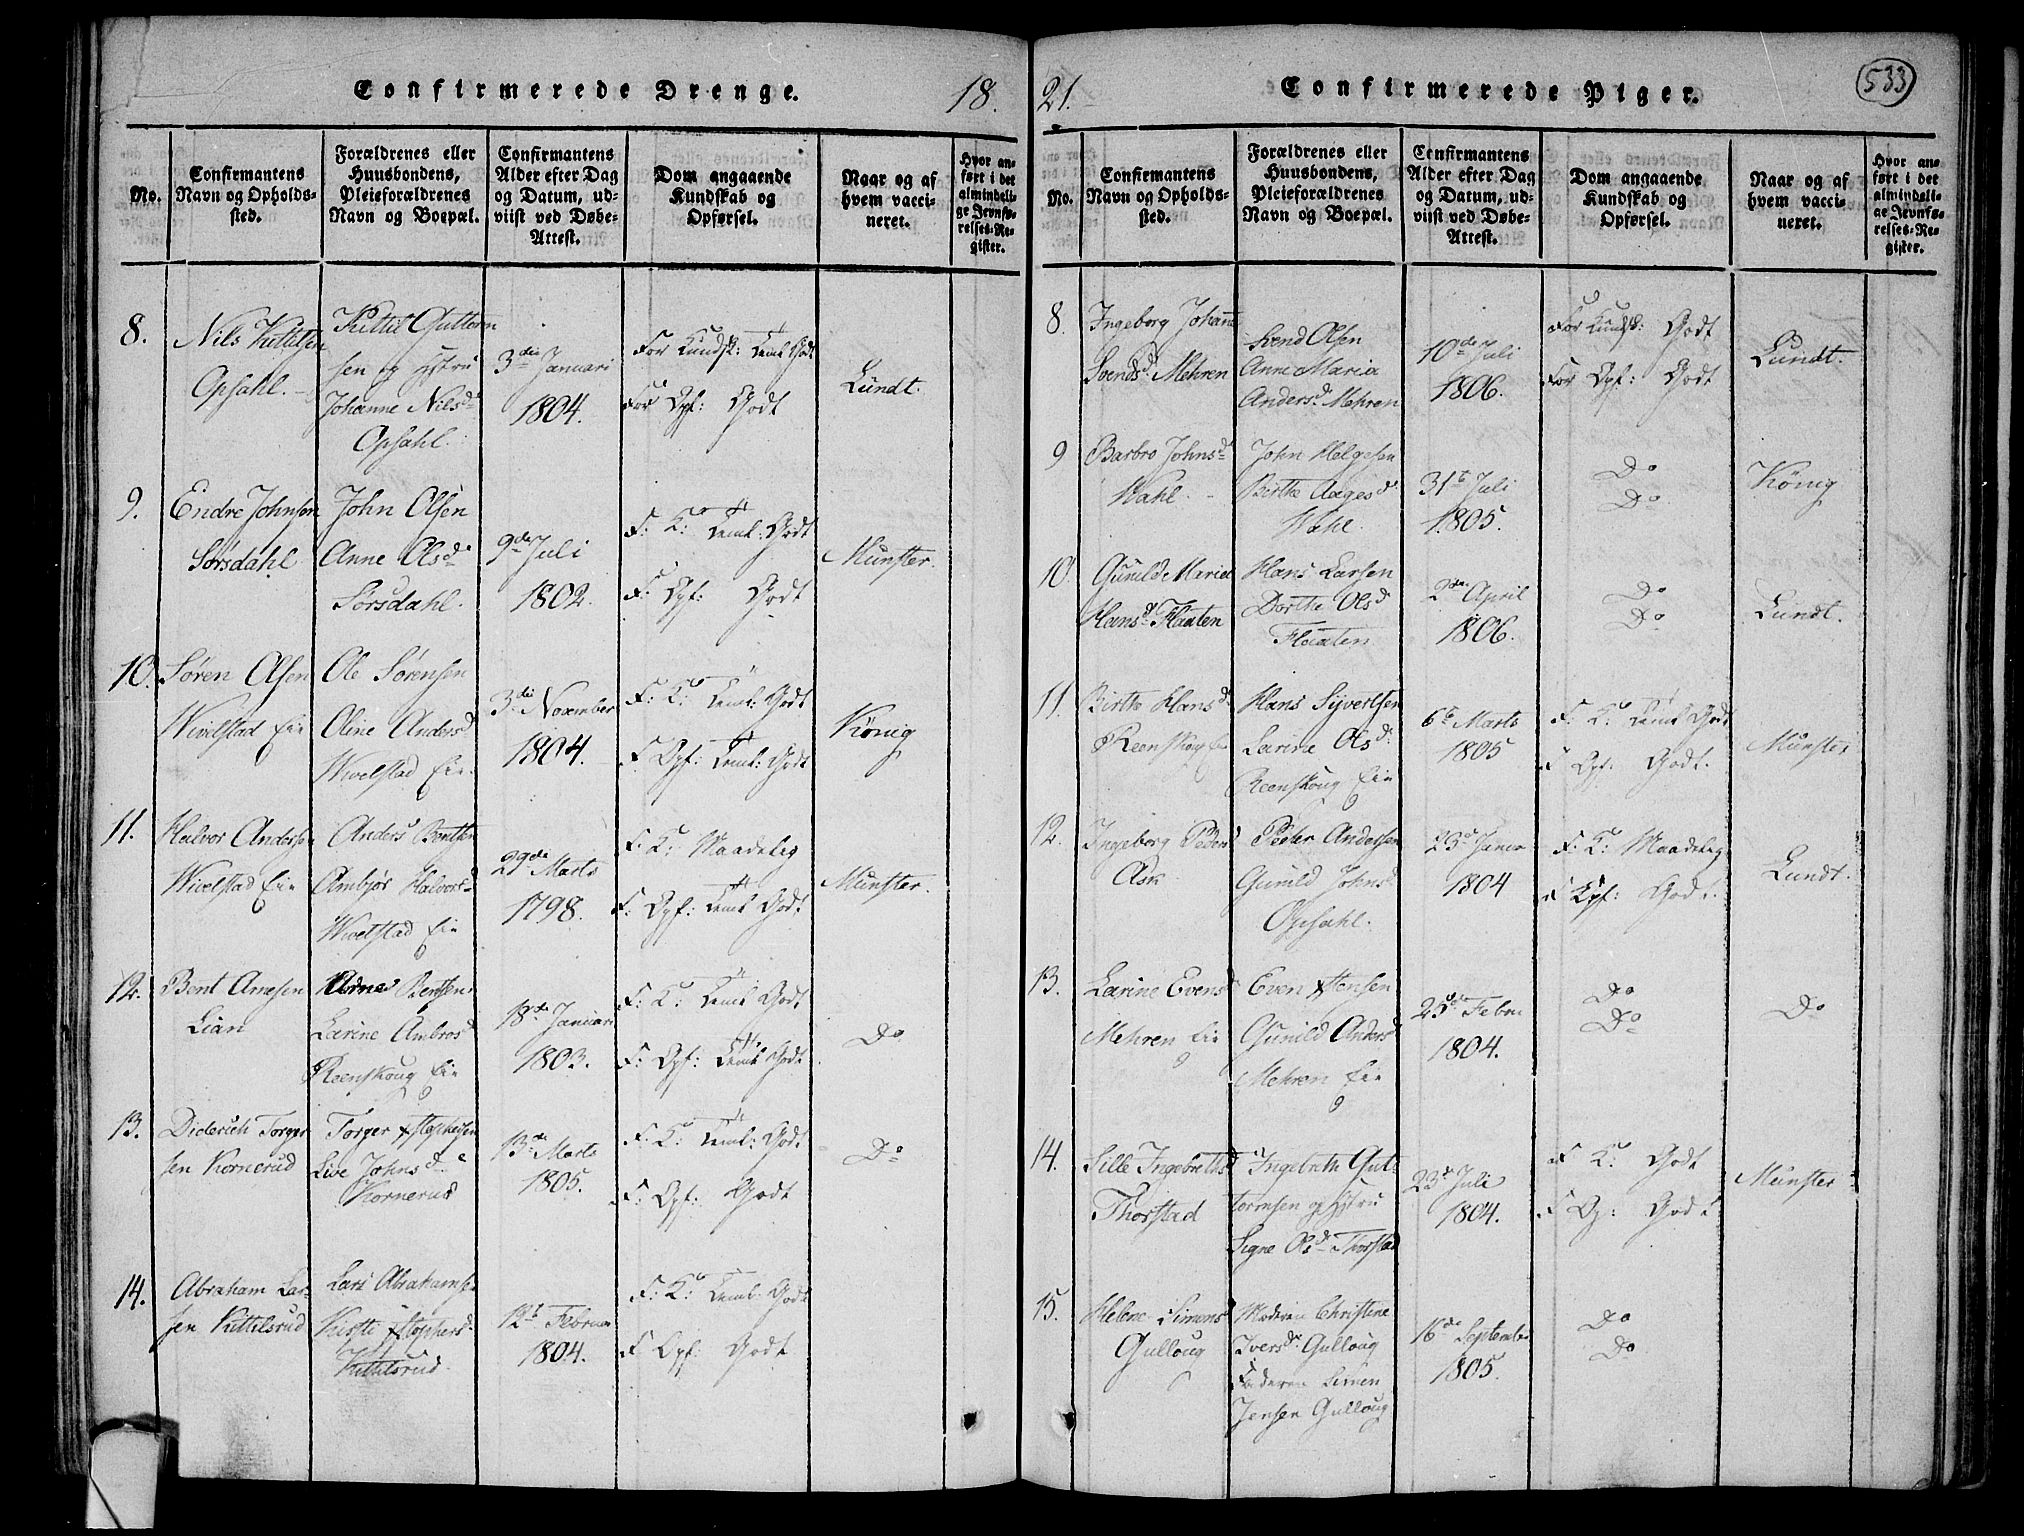 Confirmerede Drenge.
18.
No.
Confirmantens Navn og Opholds-sted.
Forældrenes eller Huusbondens, Pleieforældrenes Navn og Boepæl.
Confirmantens Alder efter Dag og Datum, ud-viist ved Døbe-Attest.
Dom angaaende Kundskab og Opførsel.
Naar og af hvem vacci-neret.
Hvor an-ført i det almindeli-ge Jevnfø-relses-Re-gister.
8.
Nils Kittilsen
Opsahl.
Kittil Guttorm
sen og Hstru
Johanne Nilsd
Opsahl.
3die Januari
1804.
For Kundsk: Teml: Godt
For Opf: Godt
Lundt.
9.
Endre Johnsen
Sørsdahl
John Olsen
Anne Olsd
Sørsdahl.
9de Juli
1802.
F: K: Teml: Godt
F: Opf: Godt
Münster.
10.
Søren Olsen
Wivelstad Eie
Ole Sørensen
Oline Andersd
Wivelstad Eie
3die November
1804.
F: K: Teml: Godt
F: Opf: Teml: Godt
König
11.
Halvor Andersen
Wivelstad Eie
Anders Bentsen
Ambjør Halvorsd
Wivelstad Eie
29de Marts
1798.
F: K: Maadelig
F: Opf: Teml: Godt
Münster.
12.
Bent Arnesen
Lian
Arne Bentsen
Larine Ambrosd
Reenskoug Eie
18de Januari
1803.
F: K: Teml: Godt
F: Opf: Teml: Godt
Do
13.
Diderich Torger
sen Kornerud
Torger Stophersen
Live Johnsd
Kornerud
13de Marts
1805.
F: K: Teml: Godt
F: Opf: Godt
Do
14.
Abraham Lar-
sen Kittilsrud
Lars Abrahamsen
Kirsti Stophersd
Kittilsrud
12t Februar
1804.
F: K: Teml: Godt
F: Opf: Godt
21.
Confirmerede Piger.
533
No.
Confirmantens Navn og Opholds-sted.
Forældrenes eller Huusbondens, Pleieforældrenes Navn og Boepæl.
Confirmantens Alder efter Dag og Datum, ud-viist ved Døbe-Attest.
Dom angaaende Kundskab og Opførsel.
Naar og af hvem vacci-neret.
Hvor an-ført i det almindeli-ge Jevnfø-relses-Re-gister.
8.
Ingeborg Johanne
Svendsd Mehren
Svend Olsen
Anne Maria
Andersd Mehren
10de Juli
1806.
For Kundsk: Godt
For Opf: Godt
Lundt.
9
Barbro Johnsd
Wahl.
John Helgesen
Birthe Aagesd
Wahl.
31t Juli
1805.
Do
Do
König
10.
Gunild Maria
Hansd Flaaten
Hans Larsen
Dorthe Olsd
Flaaten
2den April
1806.
Do
Do
Lundt.
11.
Birthe Hansd
Reenskoug Eie
Hans Syvertsen
Larine Olsd
Reenskoug Eie
6te Marts
1805
F: K: Teml Godt
F Opf: Godt.
Münster
12.
Ingeborg Pedersd
Ask
Peder Andersen
Gunild Johnsd
Opsahl.
23d Janua
1804
F: K: Maadelig
F Opf: Godt.
Lundt.
13.
Larine Evensd
Mehren Eie
Even Stensen
Gunild Andersd
Mehren Eie
25de Febru
1804.
Do
Do
Do
14.
Sille Ingebrethsd
Thorstad
Ingebreth Gut
tormsen og Hstru
Signe Olsd Thorstad
23d Juli
1804.
F K: Godt
F Op: Godt
Münster
15.
Helene Simensd
Gulloug
Moderen Christine
Iversd Gulloug
Faderen Simen
Jensen Gulloug
16de September
1805.
Do
Do